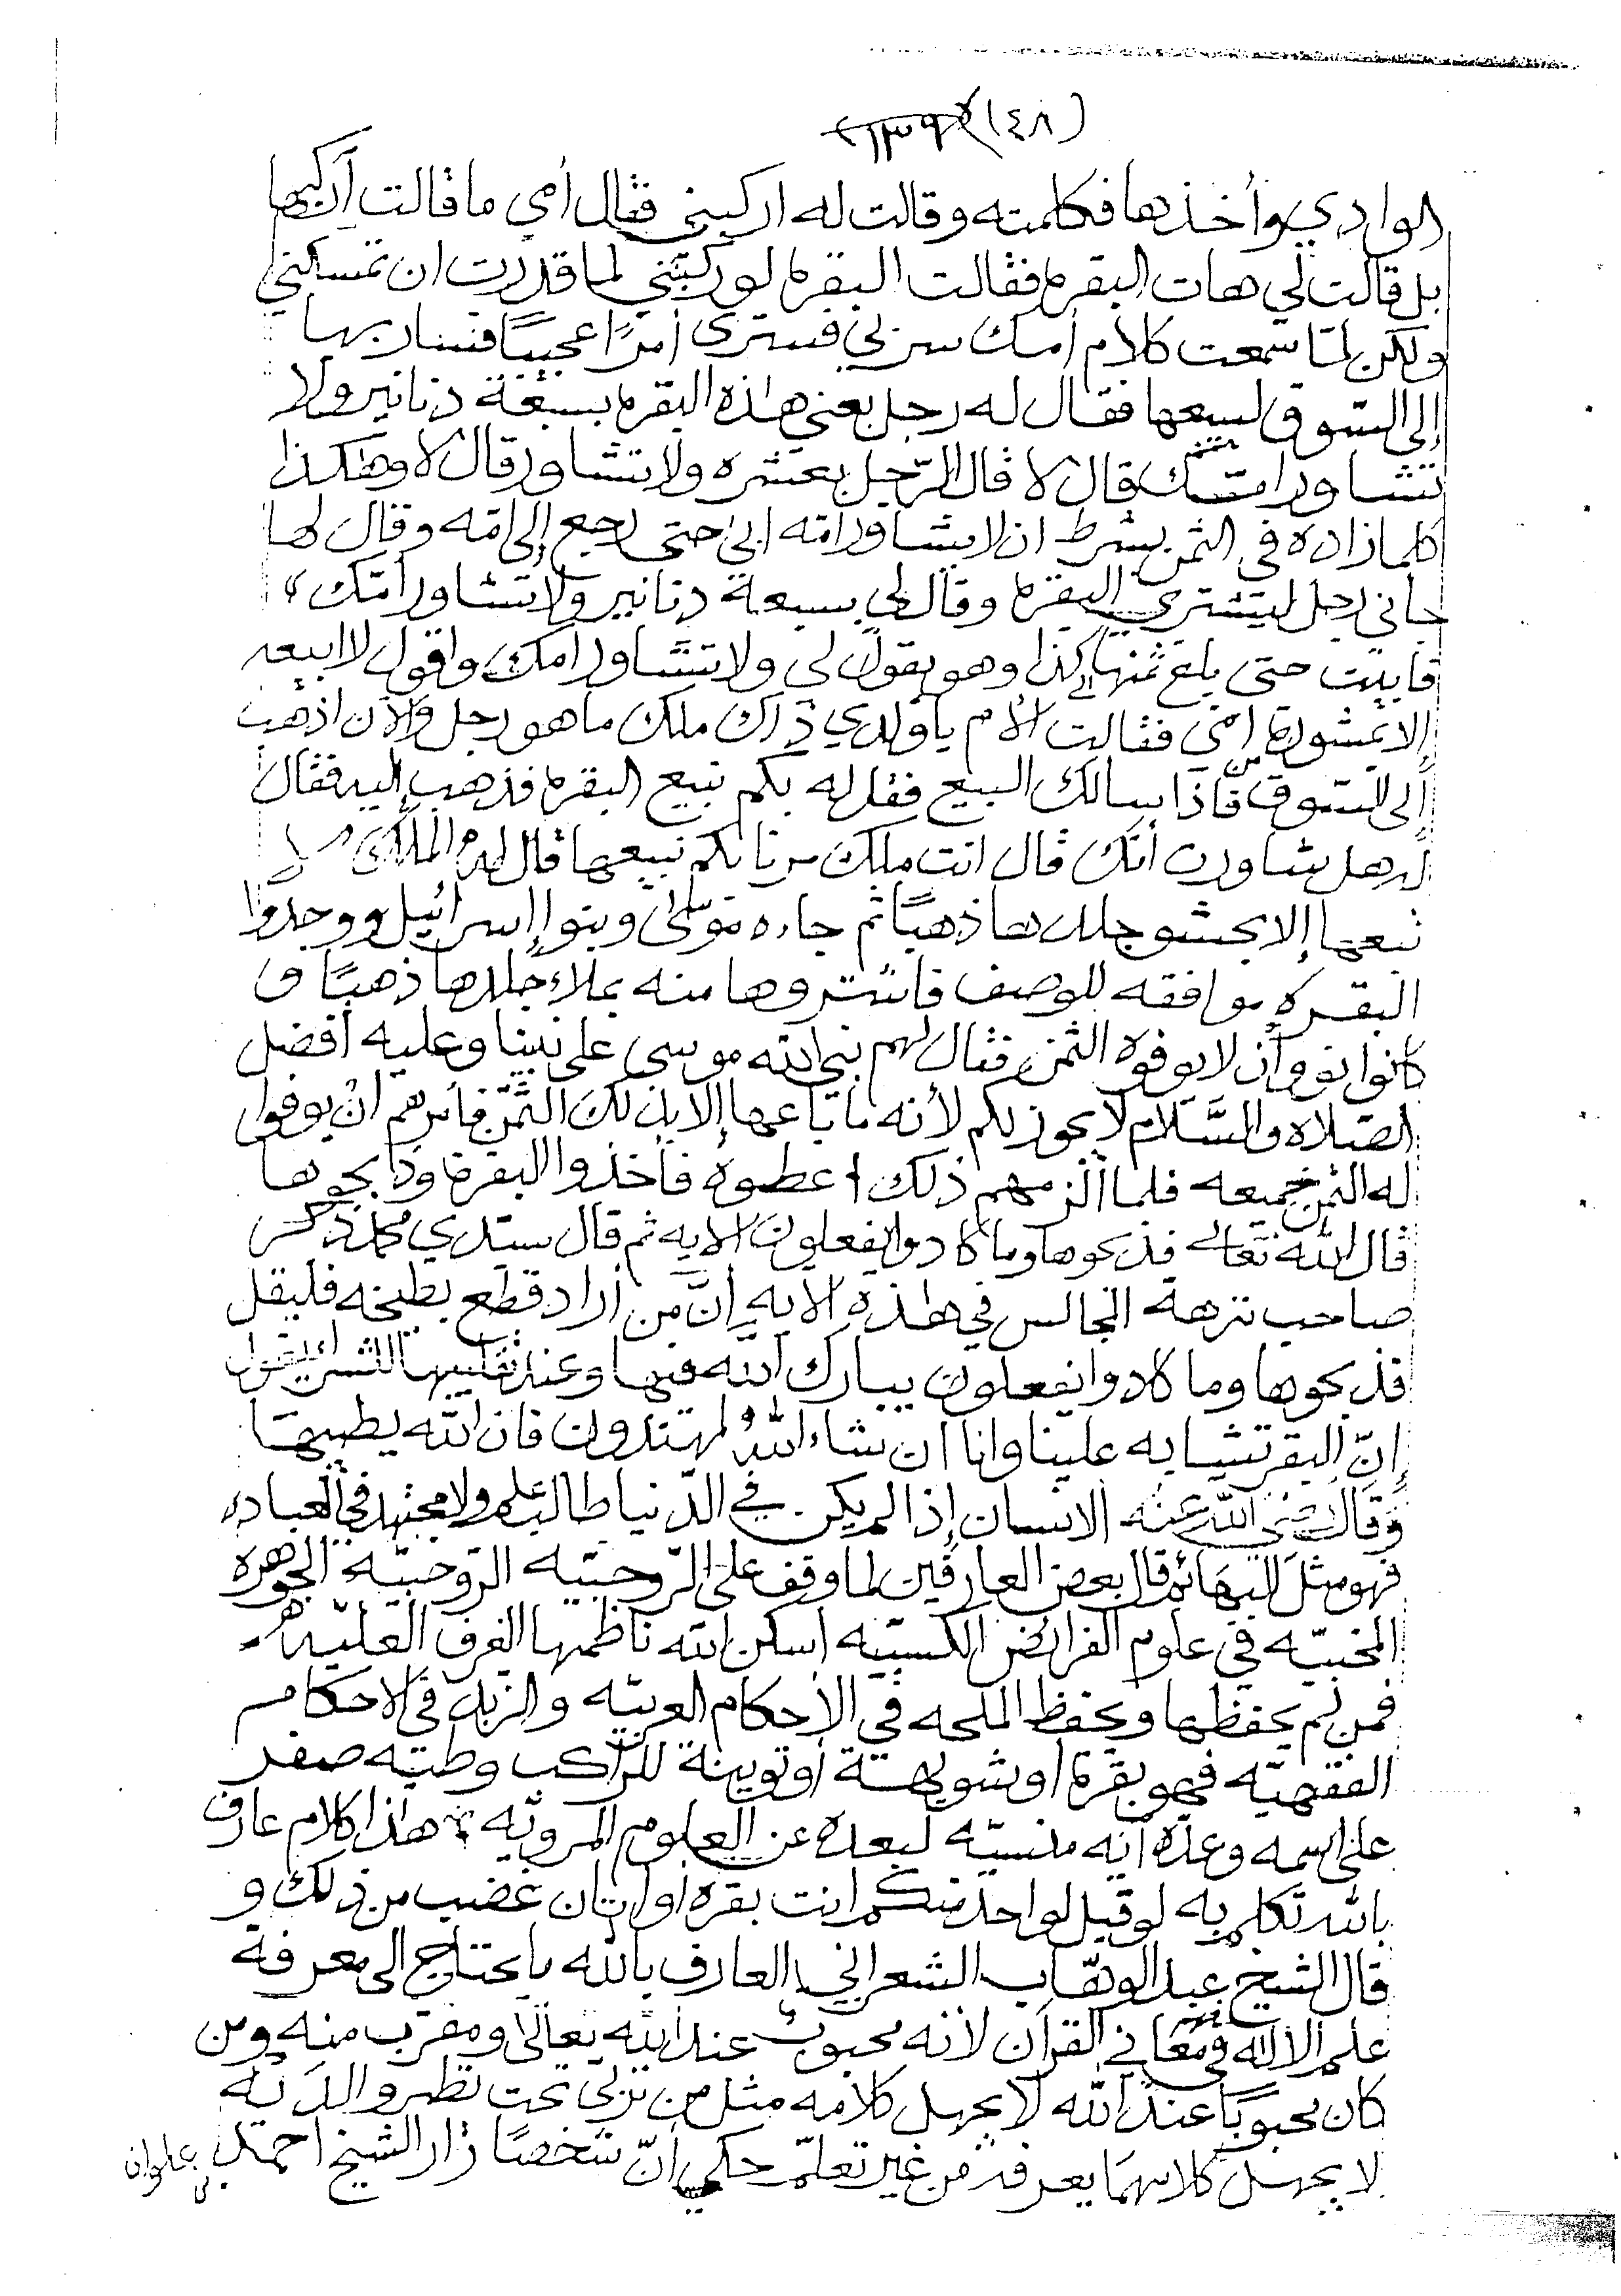 (٤٨) ١٣٩
الوادي وأخذها فكلمته وقالت له اركبني فقال أمي ما قالت أركبها
بل قالت لي هات البقرة فقالت البقرة لو ركبتني لما قدرت ان تمسكني
ولكن لمّا سمعت كلام أمك سر بي فسترى أمرًا عجيبًا فسار بها
إلى السّوق ليبيعها فقال له رجل بعني هذه البقرة بسبعة دنانير ولا
تشاور امّك قال لا قال الرّجل بعشره ولا تشاور قال لا وهكذا
كلما زاده في الثمن بشرط ان لا يشاور امّه ابى حتى رجع إلى امّه وقال لها
جاني رجل ليشتري البقرة وقال لي بسبعة دنانير ولا تشاور أمّك
فابيت حتى بلغ ثمنها كذا وهو يقول لي ولا تشاور امك واقول لا ابيعه
إلا بمشورة امّي فقالت الأم يا ولدي ذاك ملك ما هو رجل والآن اذهب
إلى السّوق فإذا سالك البيع فقل له بكم نبيع البقرة فذهب إليه فقال
له هل شاورت أمّك قال انت ملك مرنا بكم نبيعها قال له الملك لا
تبعها إلا بحشو جلدها ذهبًا ثم جاءه موسى وبنوا إسرائيل ووجدوا
البقره موافقه للوصف فاشتروها منه بملاء جلدها ذهبًا و
كانوا نووا أن لا يوفوه الثمن فقال لهم نبي الله موسى على نبينا وعليه أفضل
الصّلاه والسَّلام لا يجوز لكم لأنه ما باعها إلا بذلك الثّمن فأمرهم انْ يوفوا
له الثمن جميعه فلما ألزمهم ذلك اعطوه فأخذوا البقرة وذبحوها
قال اللّه تعالى فذبحوها وما كادوا يفعلون الايه ثم قال سيّدي محمد ذكر
صاحب نزهة المجالس في هذه الايه إنَّ من أراد قطع بطيخه فليقل
فذبحوها وما كادوا يفعلون يبارك الله فيها وعند تقليبها للشراء يقول
إنّ البقر تشابه علينا وانا ان شاء اللّه لمهتدون فان اللّه يطيبها
وقال رضي اللّه عنه الانسان إذا لم يكن في الدّنيا طالب علم ولا مجتهد في العباده
فهو مثل البهائم قال بعض العارفين لما وقف على الرّحبيّه الرّوحبيّة الجوهره
المخبيّه في علوم الفرائض الكسبيّه أسكن اللّه ناظمها الغرف العليّه
فمن لم يحفظها ويحفظ الملحه في الأحكام العربيّه والزبد في الاحكام
الفقهيّه فهو بقرة او شويهة أو للرّاكب وطيّه صفر
على اسمه وعدّه انه منسيّه لبعده عن العلوم المرويّه هذا كلام عارف
بالله تكلم به لو قيل لواحد منكم انت بقره أو اتان غضب من ذلك و
قال الشيخ عبد الوهّاب الشعراني العارف بالله ما يحتاج الى معرفة
علم الا الله في معاني القرآن لأنه محبوب عند اللّه تعالى ومقرّب منه ومن
كان محبوبًا عند الله لا يجهل كلامه مثل من تربّى تحت نظر والدَيْه
لا يجهل كلامهمَا يعرفه من غير تعلّم حكي أنّ شخصًا زار الشيخ احمد بن علوان